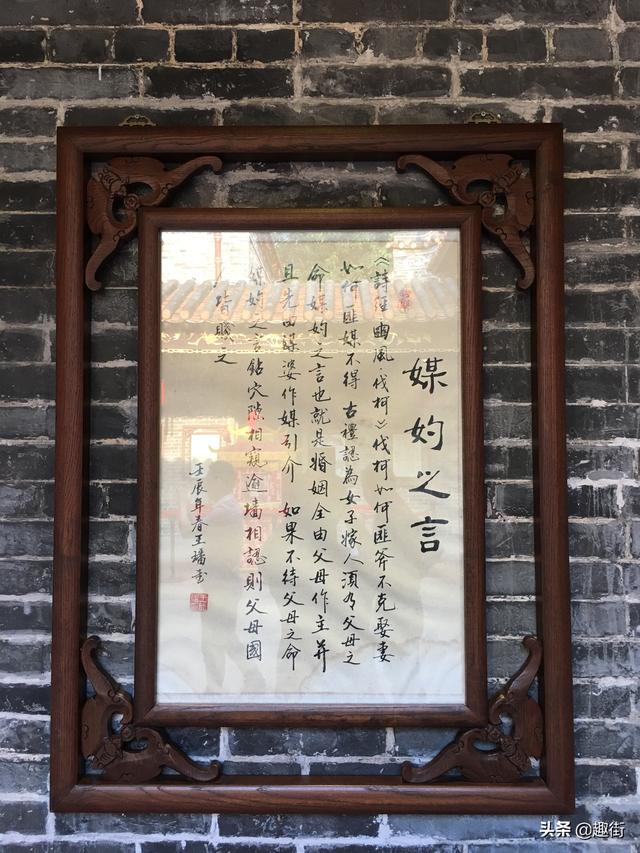 媒妁之言
《詩經豳風·伐柯》伐柯如何匪斧不克娶妻
如何匪媒不得 古禮認為女子嫁人須有父母之
命媒妁之言也就是婚姻全由父母作主并
且先由媒婆作媒引介 如果不待父母之命
媒妁之言鉆穴隙相窺逾墻相
則父母國
人皆賤之
壬辰年春王
头条 @趣街